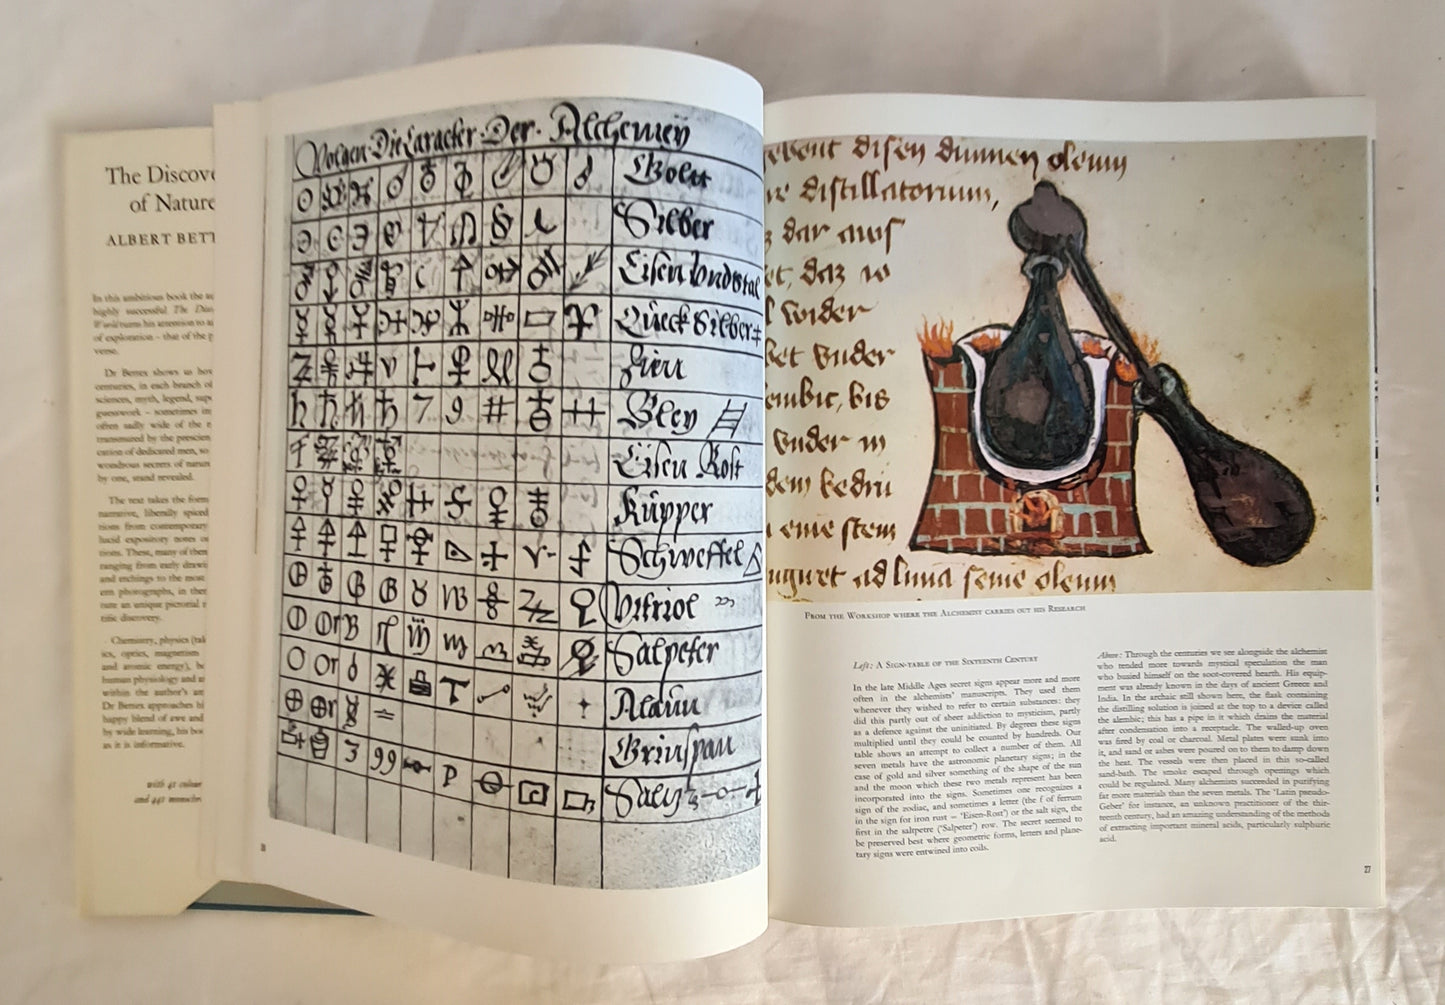 The Discove
of Nature
ALBERT BETT
In this ambitious book the au
highly successful The Disc
World turns his attention to a
of exploration – that of the p
verse.
Dr Bettex shows us how
centuries, in each branch of
sciences, myth, legend, sup
guesswork – sometimes in
often sadly wide of the
transmuted by the prescien
cation of dedicated men, so
wondrous secrets of nature
by one, stand revealed.
The text takes the form
narrative, liberally spiced
tions from contemporary
lucid expository notes o
tions. These, many of them
ranging from early draw
and etchings to the most
ern photographs, in ther
tute an unique pictorial
tific discovery.
Chemistry, physics (tak
ics, optics, magnetism
and atomic energy), b
human physiology and a
within the author's
Dr Bettex approaches hi
happy blend of awe and
by wide learning, his boo
as it is informative.
with 41 colour
and 441 monochro
Volgen Die Caracter Der Alchemeÿ
Golt
Silber
Eisen Vnd Stal
Queck Silber
Zien
Bley
Eisen Rost
Kupper
Schweffel
Vitriol
Salpeter
Alaun
Brinspan
Saltz
disen dunnen oleum
distillatorium,
dar aws
daz
wider
vnder
bis
vnder in
eme stem
ad luna seme oleum
FROM THE WORKSHOP WHERE THE ALCHEMIST CARRIES OUT HIS RESEARCH
Left: A SIGN-TABLE OF THE SIXTEENTH CENTURY
In the late Middle Ages secret signs appear more and more
often in the alchemists' manuscripts. They used them
whenever they wished to refer to certain substances: they
did this partly out of sheer addiction to mysticism, partly
as a defence against the uninitiated. By degrees these signs
multiplied until they could be counted by hundreds. Our
table shows an attempt to collect a number of them. All
seven metals have the astronomic planetary signs; in the
case of gold and silver something of the shape of the sun
and the moon which these two metals represent has been
incorporated into the signs. Sometimes one recognizes a
sign of the zodiac, and sometimes a letter (the f of ferrum
in the sign for iron rust = 'Eisen-Rost') or the salt sign, the
first in the saltpetre ('Salpeter') row. The secret seemed to
be preserved best where geometric forms, letters and plane-
tary signs were entwined into coils.
Above: Through the centuries we see alongside the alchemist
who tended more towards mystical speculation the man
who busied himself on the soot-covered hearth. His equip-
ment was already known in the days of ancient Greece and
India. In the archaic still shown here, the flask containing
the distilling solution is joined at the top to a device called
the alembic; this has a pipe in it which drains the material
after condensation into a receptacle. The walled-up oven
was fired by coal or charcoal. Metal plates were sunk into
it, and sand or ashes were poured on to them to damp down
the heat. The vessels were then placed in this so-called
sand-bath. The smoke escaped through openings which
could be regulated. Many alchemists succeeded in purifying
far more materials than the seven metals. The 'Latin pseudo-
Geber' for instance, an unknown practitioner of the thir-
teenth century, had an amazing understanding of the methods
of extracting important mineral acids, particularly sulphuric
acid.
27